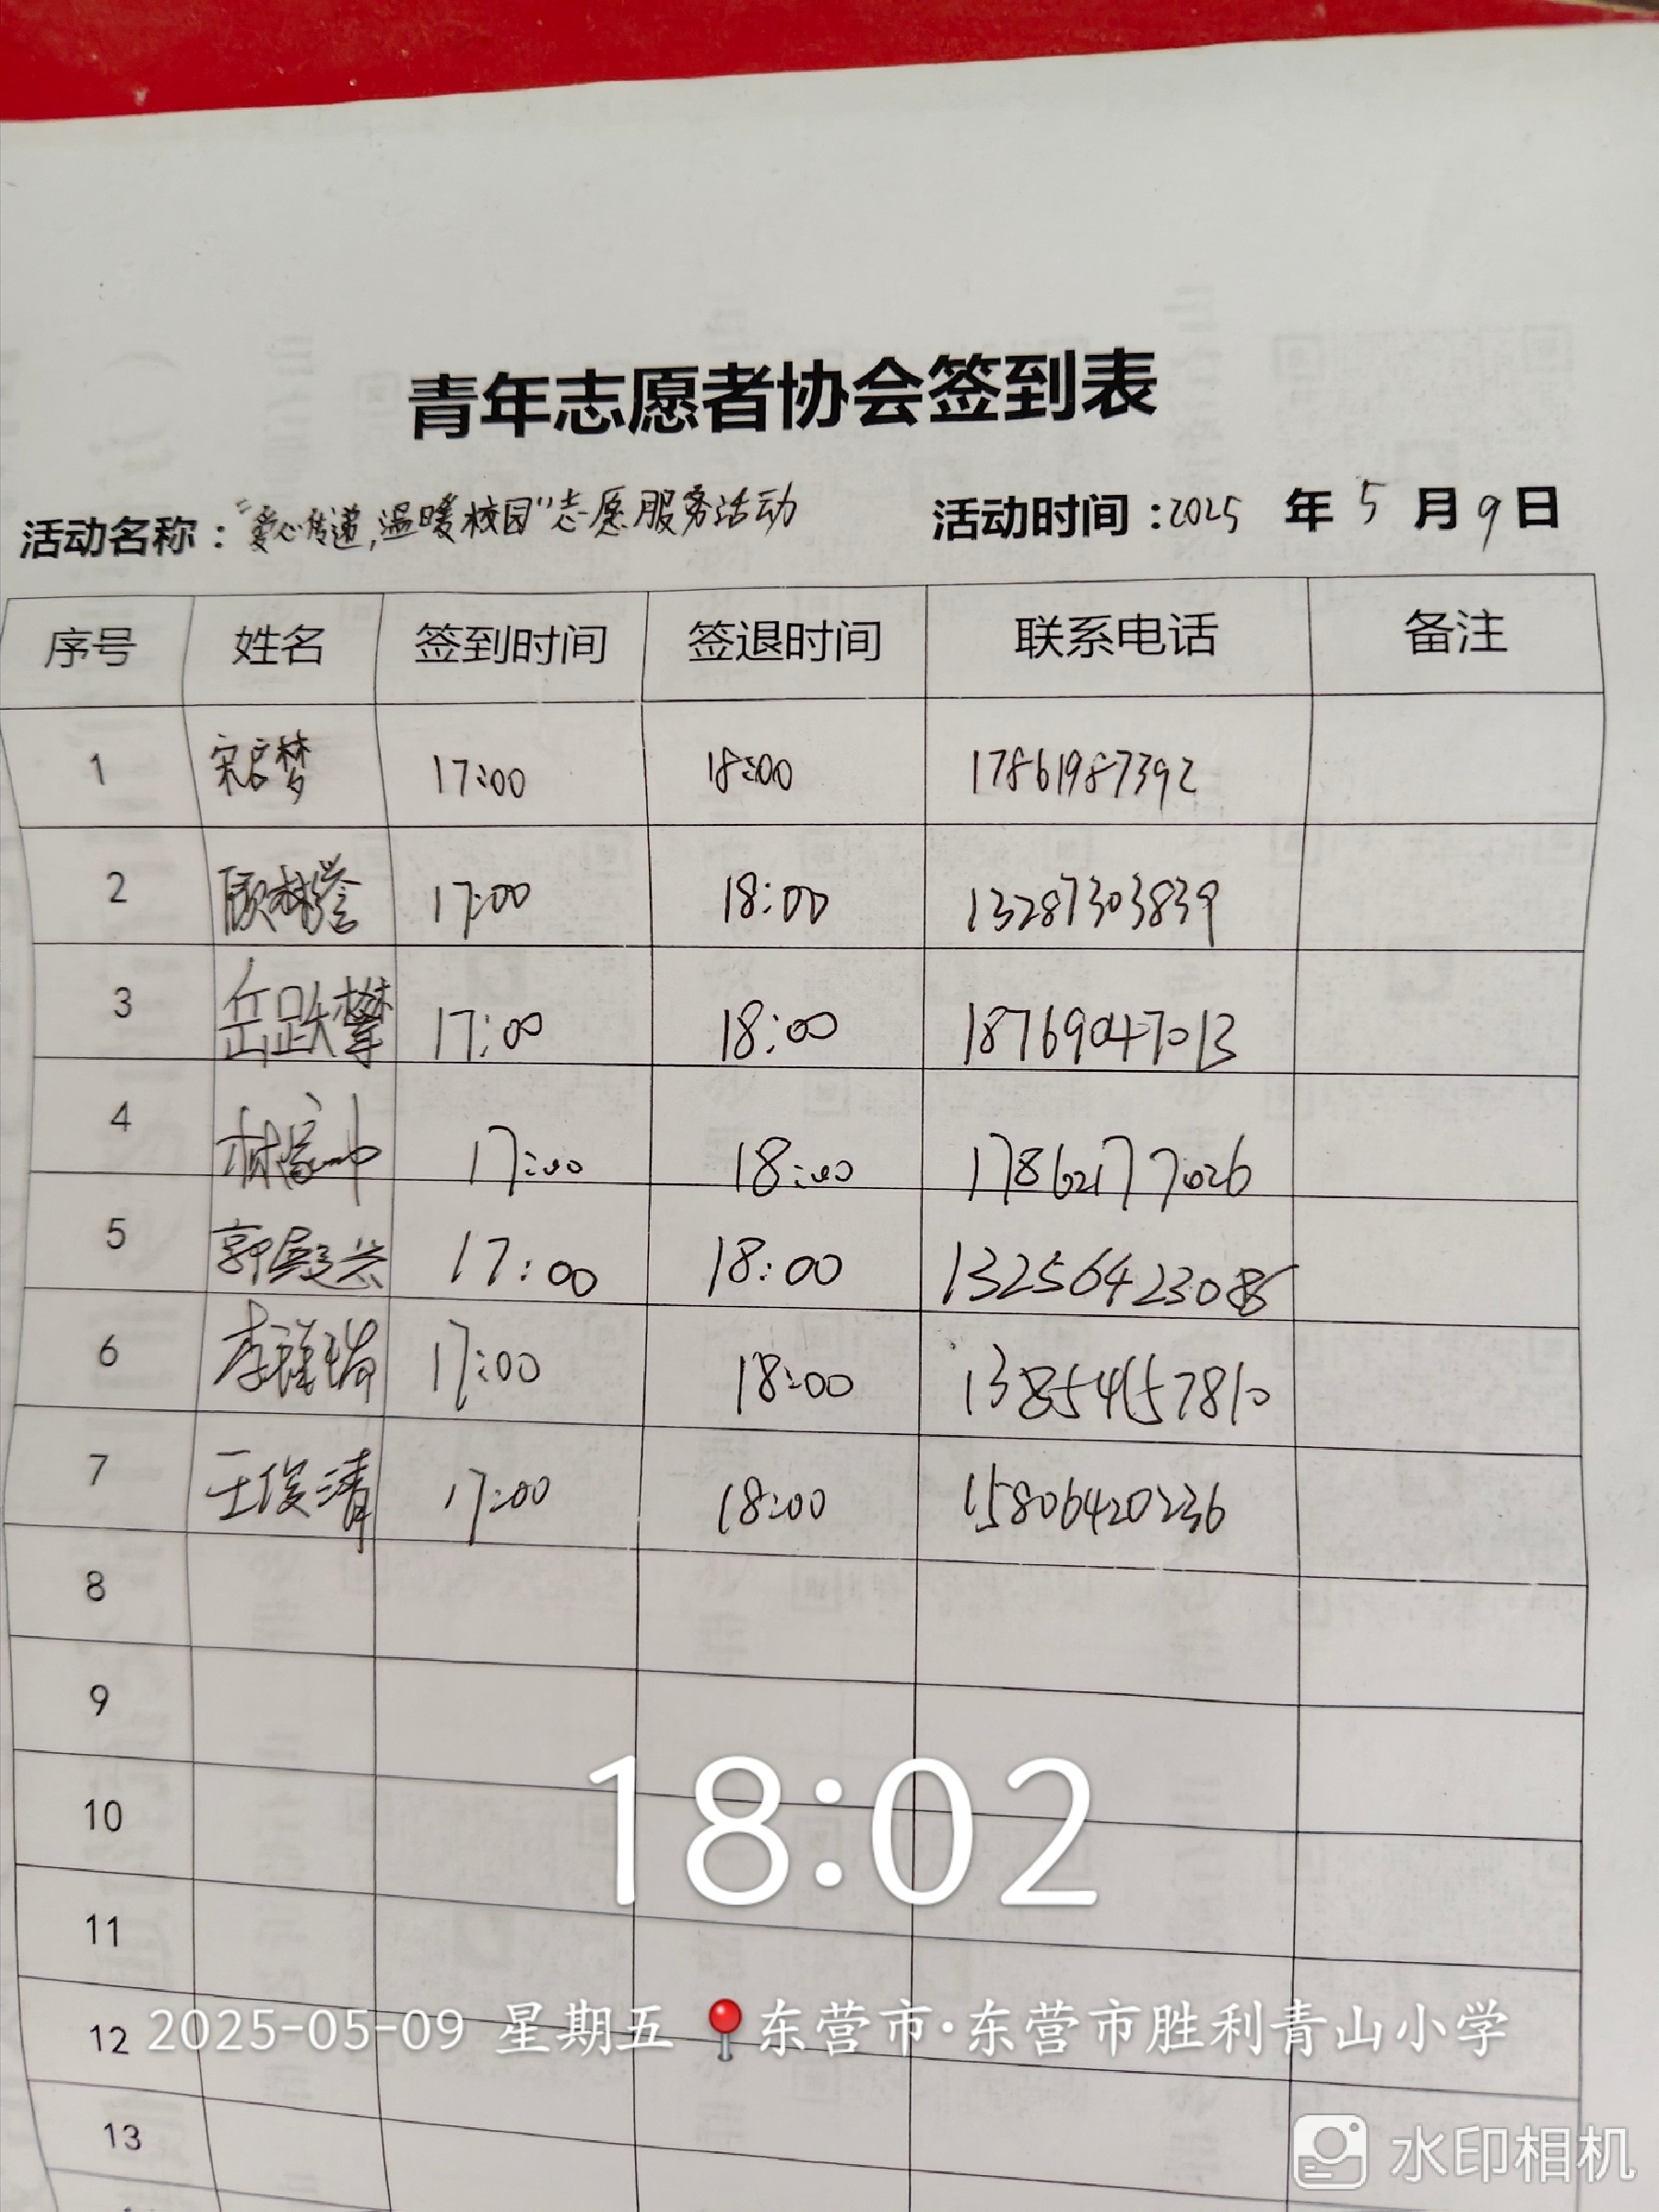 青年志愿者协会签到表
活动名称："爱心传递,温暖校园"志愿服务活动 活动时间:2025 年 5 月 9 日
序号 姓名 签到时间 签退时间 联系电话 备注
1 宋启梦 17:00 18:00 17861987392
2 顾林誉 17:00 18:00 13287303839
3 岳跃攀 17:00 18:00 18769047013
4 17:00 18:00 17862177026
5 郭殿兴 17:00 18:00 132564230
6 李雅瑞 17:00 18:00 13854657810
7 王俊清 17:00 18:00 15806420236
8
9
10
11
12
13
18:02
2025-05-09 星期五 东营市·东营市胜利青山小学
水印相机